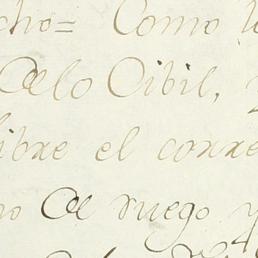 cho= Como lo
de lo Cibil, y
libre el corre
no de ruego y